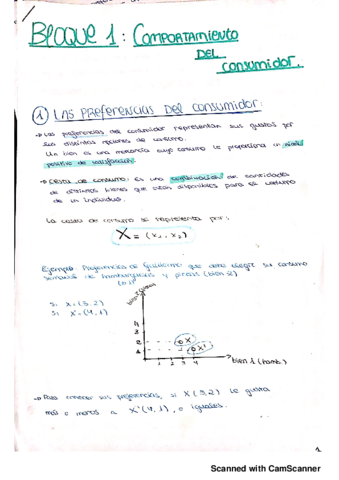 BLOQUE 1: COMPORTAMIENTO
DEL
CONSUMIDOR.
① LAS PREFERENCIAS DEL CONSUMIDOR:
→ Las preferencias del consumidor representan sus gustos por
sus distintas opciones de consumo.
Un bien es una mercancía cuyo consumo le proporciona un nivel
positivo de satisfacción.
→ Cesta de consumo: es una combinación de cantidades
de distintos bienes que están disponibles para el consumo
de un individuo.
La cesta de consumo se representa por:
X = (x₁, x₂)
Ejemplo: Preferencias de Guillermo que debe elegir su consumo
semanal de hamburguesas y pizzas (bien 2)
(b.1)
Si X = (3,2)
Si X' = (4,1)
bien 2
4
3
2
1
X
X'
1 2 3 4
bien 1 (hamb.)
→ Para conocer sus preferencias, si X (3,2) le gusta
más o menos a X' (4,1), o iguales.
1
Scanned with CamScanner